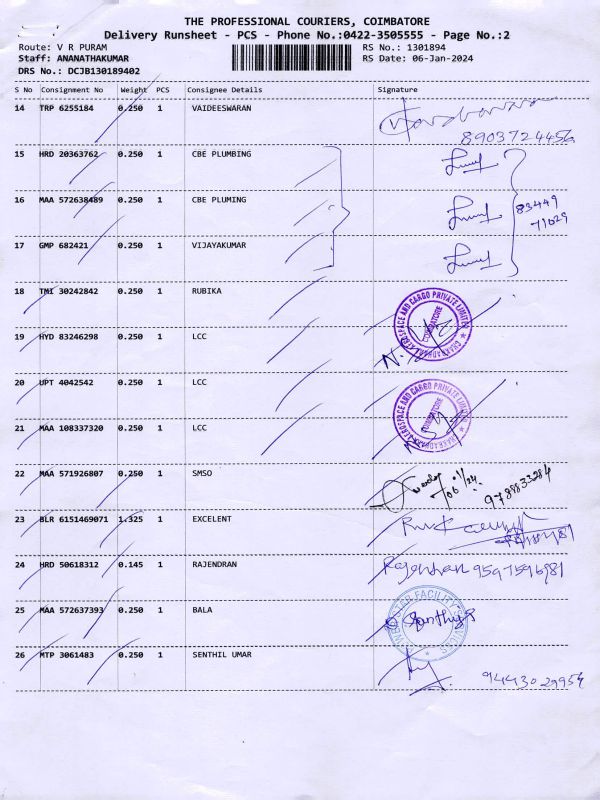 THE PROFESSIONAL COURIERS, COIMBATORE
Delivery Runsheet - PCS - Phone No.:0422-3505555 - Page No.:2
Route: V R PURAM RS No.: 1301894
Staff: ANANATHAKUMAR RS Date: 06-Jan-2024
DRS No.: DCJB130189402
S No Consignment No Weight PCS Consignee Details Signature
14 TRP 6255184 0.250 1 VAIDEESWARAN
8903724456
15 HRD 20363762 0.250 1 CBE PLUMBING
16 MAA 572638489 0.250 1 CBE PLUMING 83449
71029
17 GMP 682421 0.250 1 VIJAYAKUMAR
18 TMI 30242842 0.250 1 RUBIKA
CHAKRADHARA AEROSPACE AND CARGO PRIVATE LIMITED
COIMBATORE
19 HYD 83246298 0.250 1 LCC
20 UPT 4042542 0.250 1 LCC
CHAKRADHARA AEROSPACE AND CARGO PRIVATE LIMITED
COIMBATORE
21 MAA 108337320 0.250 1 LCC
22 MAA 571926807 0.250 1 SMSO
23 BLR 6151469071 1.325 1 EXCELENT
24 HRD 50618312 0.145 1 RAJENDRAN Rajendran 9597596981
25 MAA 572637393 0.250 1 BALA
STAR FACILITY
26 MTP 3061483 0.250 1 SENTHIL UMAR
9443029954